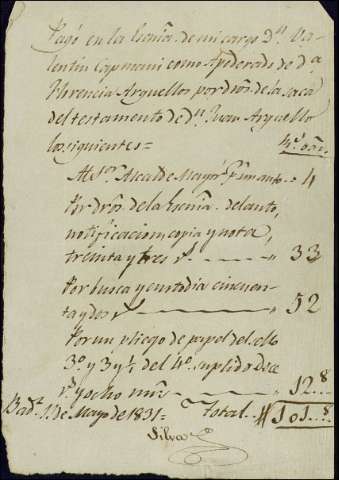 Pagó en la Escnía. de mi cargo Dn. Va-
lentin Capmani como Apoderado de Da.
Florencia Arguellos por dros. de la saca
del testamento de Dn. Juan Arguello
los siguientes=
Al Sor. Alcalde Mayor 4
Por dros. de la Escnía. del auto,
notificacion, copia y nota,
treinta y tres rs. 33
Por busca y custodia cincuen-
ta y dos rs. 52
Por un pliego de papel del sello
3o. y 3 y ½ del 4o. suplido doce
rs. y ocho mrs. 12..8
Badz. 1 de Mayo de 1831= Total 101..8
Silva